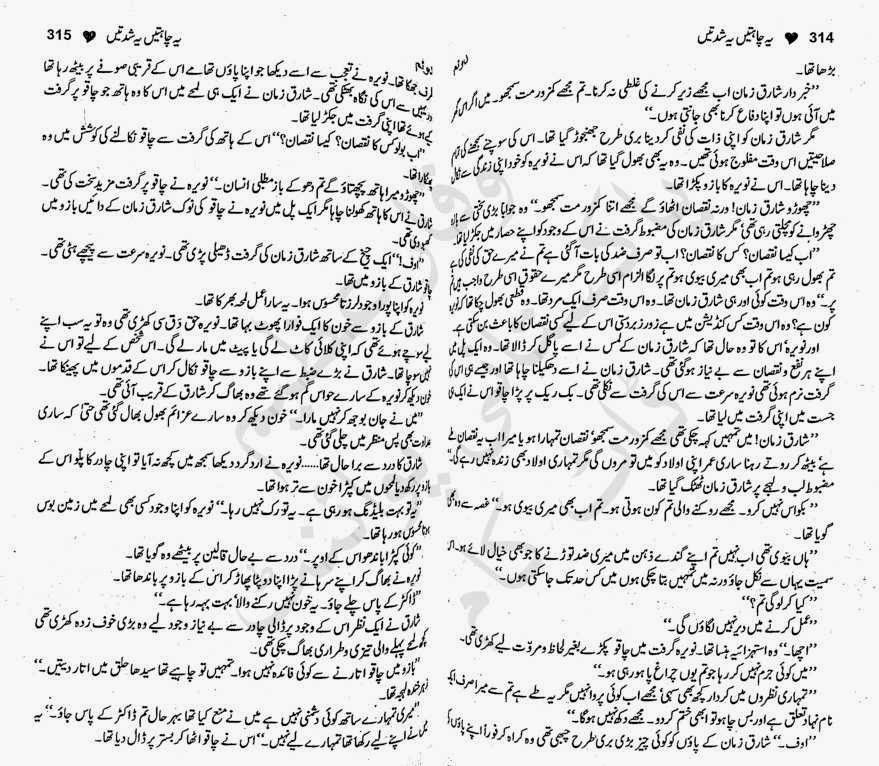 314 ♥ یہ چاہتیں یہ شدتیں
بڑھا تھا۔
’’خبردار شارق زمان اب مجھے زیر کرنے کی غلطی نہ کرنا۔ تم مجھے کمزور مت سمجھو۔ میں اگر اس گھر
میں آئی ہوں تو اپنا دفاع کرنا بھی جانتی ہوں۔‘‘
مگر شارق زمان کو اپنی ذات کی نفی کر دینا بری طرح جھنجوڑ گیا تھا۔ اس کی سوچنے سمجھنے کی تمام
صلاحیتیں اس وقت مفلوج ہوئی تھیں۔ وہ یہ بھی بھول گیا تھا کہ اس نے نویرہ کو خود اپنی زندگی سے نکال
دینا چاہا تھا۔ اس نے نویرہ کا بازو پکڑا تھا۔
’’چھوڑو شارق زمان! ورنہ نقصان اٹھاؤ گے مجھے اتنا کمزور مت سمجھو۔‘‘ وہ جواباً بڑی سختی سے بازو
چھڑوانے کو مچلتی رہی تھی مگر شارق زمان کی مضبوط گرفت نے اس کے وجود کو اپنے حصار میں جکڑ لیا تھا۔
’’اب کیسا نقصان؟ کس کا نقصان؟ اب تو صرف ضد کی بات آ گئی ہے تم نے میرے حق کی نفی کی ہے
تم بھول رہی ہو تم اب بھی میری بیوی ہو تم پر لگا الزام اسی طرح مگر میرے حقوق اسی طرح واجب ہیں تم
پر۔‘‘ وہ اس وقت کوئی اور ہی شارق زمان تھا۔ وہ اس وقت صرف ایک مرد تھا۔ وہ قطعی بھول چکا تھا کہ نویرہ
کون ہے؟ وہ اس وقت کس کنڈیشن میں ہے زور زبردستی اس کے لیے کسی نقصان کا باعث بن سکتی ہے۔
اور نویرہ اس کا تو وہ حال تھا کہ شارق زمان کے لمس نے اسے پاگل کر ڈالا تھا۔ وہ ایک پل میں
اپنے ہر نفع و نقصان سے بے نیاز ہو گئی تھی۔ شارق زمان نے اسے دھکیلنا چاہا تھا اور جیسے ہی اس کی
گرفت نرم ہوئی تھی نویرہ سرعت سے اس کی گرفت سے نکلی تھی۔ بک ریک پر پڑا چاقو اس نے ایک ہی
جست میں اپنی گرفت میں لیا تھا۔
’’شارق زمان! میں تمہیں کہہ چکی تھی مجھے کمزور مت سمجھو‘ نقصان تمہارا ہو یا میرا اب یہ نقصان طے
ہے بیٹھ کر روتے رہنا ساری عمر اپنی اولاد کو میں تو مروں گی مگر تمہاری اولاد بھی زندہ نہیں رہے گی۔‘‘
مضبوط لب و لہجے پر شارق زمان ٹھٹک گیا تھا۔
’’بکواس نہیں کرو۔ مجھے روکنے والی تم کون ہوتی ہو۔ تم اب بھی میری بیوی ہو۔‘‘ غصہ سے وہ
گویا تھا۔
’’ہاں بیوی تھی اب نہیں تم اپنے گندے ذہن میں میری ضد توڑنے کا جو بھی خیال لائے ہو۔ اس
سمیت یہاں سے نکل جاؤ ورنہ میں تمہیں بتا چکی ہوں میں کس حد تک جا سکتی ہوں۔‘‘
’’کیا کر لو گی تم؟‘‘
’’عمل کرنے میں دیر نہیں لگاؤں گی۔‘‘
’’اچھا۔‘‘ وہ استہزائیہ ہنسا تھا۔ نویرہ گرفت میں چاقو پکڑے بغیر لحاظ و مروت لیے کھڑی تھی۔
’’میں کوئی جرم نہیں کر رہا جو تم یوں چراغ پا ہو رہی ہو۔‘‘
’’تمہاری نظروں میں کردار کچھ بھی سہی‘ مجھے اب کوئی پروا نہیں مگر یہ طے ہے تم سے میرا صرف ایک
نام نہاد تعلق ہے اور بس چاہو تو ابھی ختم کر دو۔ مجھے دکھ نہیں ہو گا۔‘‘
’’اوف۔‘‘ شارق زمان کے پاؤں کو کوئی چیز بڑی بری طرح چبھی تھی وہ کراہ کر فوراً اپنے پاؤں کی
315 ♥ یہ چاہتیں یہ شدتیں
طرف جھکا تھا۔ نویرہ نے تعجب سے اسے دیکھا جو اپنا پاؤں تھامے اس کے قریبی صوفے پر بیٹھ رہا تھا
وہیں سے اس کی نگاہ بھٹکی تھی۔ شارق زمان نے ایک ہی لمحے میں اس کا وہ ہاتھ جو چاقو پر گرفت
لیے ہوئے تھا اپنی گرفت میں جکڑ لیا تھا۔
’’اب بولو کس کا نقصان؟ کیسا نقصان؟‘‘ اس کے ہاتھ کی گرفت سے چاقو نکالنے کی کوشش میں وہ
پھنکارا تھا۔
’’چھوڑو میرا ہاتھ پچھتاؤ گے تم دھوکے باز مطلبی انسان۔‘‘ نویرہ نے چاقو پر گرفت مزید سخت کی تھی۔
شارق نے اس کا ہاتھ کھولنا چاہا مگر ایک پل میں نویرہ نے چاقو کی نوک شارق زمان کے دائیں بازو میں
گھسیڑ دی تھی۔
’’اوف!‘‘ ایک چیخ کے ساتھ شارق زمان کی گرفت ڈھیلی پڑی تھی۔ نویرہ سرعت سے پیچھے ہٹی تھی۔
چاقو شارق کے بازو میں تھا۔
نویرہ کو اپنا پورا وجود لرزتا محسوس ہوا۔ یہ سارا عمل لمحہ بھر کا تھا۔
شارق کے بازو سے خون کا ایک فوارا پھوٹ بہا تھا۔ نویرہ حق دق سی کھڑی تھی وہ تو یہ سب اپنے
لیے سوچے ہوئے تھی کہ اپنی کلائی کاٹ لے گی یا پیٹ میں مار لے گی۔ اس شخص کے لیے تو اس نے
نہیں سوچا تھا۔ شارق نے بڑے ضبط سے اپنے بازو سے چاقو نکال کر اس کے قدموں میں پھینکا تھا۔
خون دیکھ کر نویرہ کے سارے حواس گم ہو گئے تھے وہ بھاگ کر شارق کے قریب آئی تھی۔
’’میں نے جان بوجھ کر نہیں مارا۔‘‘ خون دیکھ کر وہ سارے عزائم بھول بھال گئی تھی حتیٰ کہ ساری
عداوت بھی پس منظر میں چلی گئی تھی۔
شارق کا درد سے برا حال تھا…… نویرہ نے ارد گرد دیکھا سمجھ میں کچھ نہ آیا تو اپنی چادر کا پلو اس کے
بازو پر رکھ دیا لمحوں میں کپڑا خون سے تر ہوا تھا۔
’’یہ تو بہت بلیڈنگ ہو رہی ہے۔ یہ تو رک نہیں رہا۔‘‘ نویرہ کو اپنا وجود کسی بھی لمحے میں زمین بوس
ہوتا محسوس ہو رہا تھا۔
’’کوئی کپڑا باندھو اس کے اوپر۔‘‘ درد سے بے حال قالین پر بیٹھے وہ گویا تھا۔
نویرہ نے بھاگ کر اپنے سرہانے پڑا اپنا دوپٹا پھاڑ کر اس کے بازو پر باندھا تھا۔
’’ڈاکٹر کے پاس چلے جاؤ۔ یہ خون نہیں رکنے والا‘ بہت بہہ رہا ہے۔‘‘
شارق نے ایک نظر اس کے وجود پر ڈالی چادر سے بے نیاز وجود لیے وہ بڑی خوف زدہ کھڑی تھی
کچھ لمحے پہلے والی تیزی و طراری بھاگ چکی تھی۔
’’بازو میں چاقو اتارنے سے کوئی فائدہ نہیں ہوا۔ تمہیں تو چاہیے تھا سیدھا حلق میں اتار دیتیں۔‘‘
لہجہ تھا۔
’’میری تمہارے ساتھ کوئی دشمنی نہیں ہے میں نے منع کیا تھا بہرحال تم ڈاکٹر کے پاس جاؤ۔‘‘ یہ
میں نے اپنے لیے رکھا تھا تمہارے لیے نہیں۔‘‘ اس نے چاقو اٹھا کر بستر پر ڈال دیا تھا۔